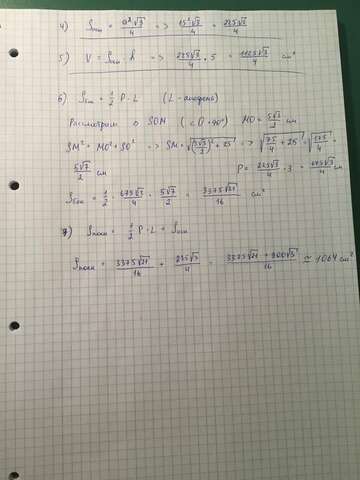 4) Sосн = a²√3/4 => 15²√3/4 = 225√3/4
5) V = Sосн · h => 225√3/4 · 5 = 1125√3/4 см³
6) Sбок = 1/2 P · L (L - апофема)
Рассмотрим △ SOM (∠O = 90°) MO = 5√3/2 см
SM² = MO² + SO² => SM = √((5√3/2)² + 25) => √(75/4 + 25) = √(175/4) =
5√7/2 см P = 225√3/4 · 3 = 675√3/4 см
Sбок = 1/2 · 675√3/4 · 5√7/2 = 3375√21/16 см²
7) Sполн = 1/2 P · L + Sосн
Sполн = 3375√21/16 + 225√3/4 = 3375√21 + 900√3/16 ≃ 1064 см²